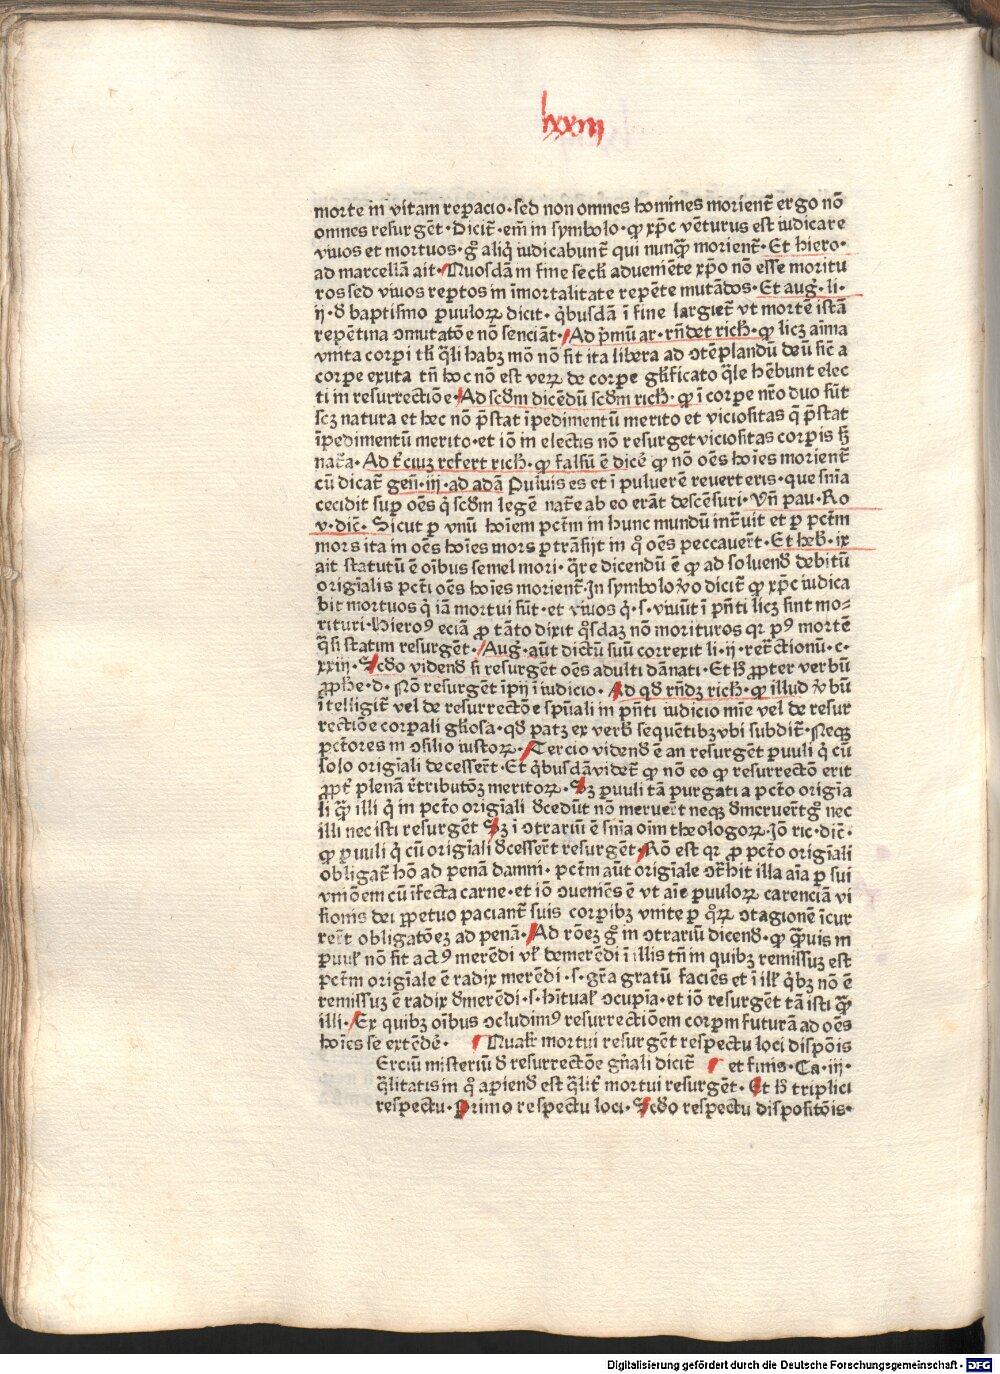 lxxiii
morte in vitam reparacio·sed non omnes homines morient̃ ergo nō
omnes resurgēt·Dicit̃·em̄ in symbolo·ꝙ xp̄c vēturus est iudicare
viuos et mortuos·gͦ aliqͥ iudicabunt̃ qui nunꝗ̄ morient̃·Et hiero·
ad marcellā ait·Quosdā in fine secĺi adueniēte xp̄o nō esse moritu
ros sed viuos rep̄tos in īmortalitate repēte mutādos·Et aug̃·li·
ij·ð baptismo ꝑuuloꝝ dicit·qͥbusdā ī fine largiet̃ vt mortē istā
repētina ꝯmutatōe nō senciāt·Ad p̄mū ar·rn̄det rich̃·ꝙ licꝫ aīma
vnita corpi tĺi qͣli habꝫ mō nō sit ita libera ad ꝯtēplandū deū sic̄ a
corpe exuta tn̄ hoc nō est veꝝ de corpe gĺificato qͣle hēbunt elec
ti in resurrectiōe·Ad scd̄m dicēdū scd̄m rich̃·ꝙ ī corpe nr̄o duo sūt
scꝫ natura et hec nō p̄stat īpedimentū merito et viciositas q̄ p̄stat
īpedimentū merito·et iō in electis nō resurget viciositas corpis sꝫ
nat̃a·Ad t̃ciuꝫ refert rich̃·ꝙ falsū ē dicē ꝙ nō oēs hoīes morient̃
cū dicat̃ gen̄·iij·ad adā Puluis es et ī puluerē reuerteris·que sn̄ia
cecidit suꝑ oēs qͥ scd̄m legē nat̃e ab eo erāt descēsuri·Vn̄ pau·Ro
v·dic̄·Sicut ꝑ vnū hoīem pctm̄ in hunc mundū int̃uit et ꝑ pctm̄
mors ita in oēs hoīes mors ꝑtrāsijt in qͦ oēs peccauer̄t·Et heb̃·ix
ait statutū ē oībus semel mori·qͣre dicendū ē ꝙ ad soluend̄ debitū
origīalis pcti oēs hoīes morient̃·In symbolo v̾o dicit̃ ꝙ xp̄c iudica
bit mortuos qͥ iā mortui sūt·et viuos qͥ·s·viuūt ī p̄nti licꝫ sint mo⸗
rituri·Hieroꝰ eciā ꝓ tāto dixit qͦsdaꝫ nō morituros qꝛ pꝰ mortē
qͣsi statim resurgēt·Aug̃·aūt dictū suū correxit li·ij·retr̄ctionū·c·
xxiij·Scd̄o vidend̄ si resurgēt oēs adulti dānati·Et sꝫ ꝓpter verbū
ꝓphe·d·Nō resurgēt īpij ī iudicio·Ad qd̄ rn̄dꝫ rich̃·ꝙ illud v̾bū
ītelligit̃ vel de resurrectōe spūali in p̄nti iudicio mīe vel de resur
rectiōe corpali gĺiosa·qd̄ patꝫ ex verb̄ sequētibꝫ vbi subdit̃·Neqꝫ
pctores in ꝯsilio iustoꝝ·Tercio vidend̄ ē an resurgēt ꝑuuli qͥ cū
solo origīali decesser̄t·Et qͥbusdā videt̃ ꝙ nō eo ꝙ resurrectō erit
ꝓpt̃ plenā r̄tributōꝫ meritoꝝ·Sꝫ ꝑuuli tā purgati a pcto origīa
li ꝗ̄ illi qͥ in pcto origīali ðcedūt nō meruer̄t neqꝫ ðmeruer̄t gͦ nec
illi nec isti resurgēt Sꝫ ī ꝯtrariū ē sn̄ia oīm theologoꝝ·Iō ric·dic̄·
ꝙ ꝑuuli qͥ cū origīali ðcesser̄t resurgēt·Rō est qꝛ ꝓ pcto origīali
obligat̃ hō ad penā damni·pctm̄ aūt origīale ꝯt̃hit illa aīa ꝑ sui
vniōem cū īfecta carne·et iō ꝯueniēs ē vt aīe ꝑuuloꝝ carenciā vi
sionis dei ꝑpetuo paciant̃ suis corpibꝫ vnite ꝑ qͦꝝ ꝯtagionē īcur
rer̄t obligatōeꝫ ad penā·Ad rōeꝫ gͦ in ꝯtrariū dicend̄·ꝙ ꝗ̄uis in
ꝑuuĺ nō sit actꝰ merēdi vĺ demerēdi ī illis tn̄ in quibꝫ remissuꝫ est
pctm̄ origīale ē radix merēdi·s·gr̄a gratū faciēs et ī illĺ qͥbꝫ nō ē
remissuꝫ ē radix ðmerēdi·s·hītuaĺ ꝯcupīa·et iō resurgēt tā isti ꝗ̄
illi·Ex quibꝫ oībus ꝯcludimꝰ resurrectiōem corpm̄ futurā ad oēs
hoīes se extēdē· Qualr̃ mortui resurgēt respectu loci dispōis
Erciū misteriū ð resurrectōe gn̄ali dicit̃ et finis·Ca·iij·
qͣlitatis in qͦ apiend̄ est qͣlit̃ mortui resurgēt·Et sꝫ triplici
respectu·Primo respectu loci·Scd̄o respectu dispositōis·
Digitalisierung gefördert durch die Deutsche Forschungsgemeinschaft - DFG